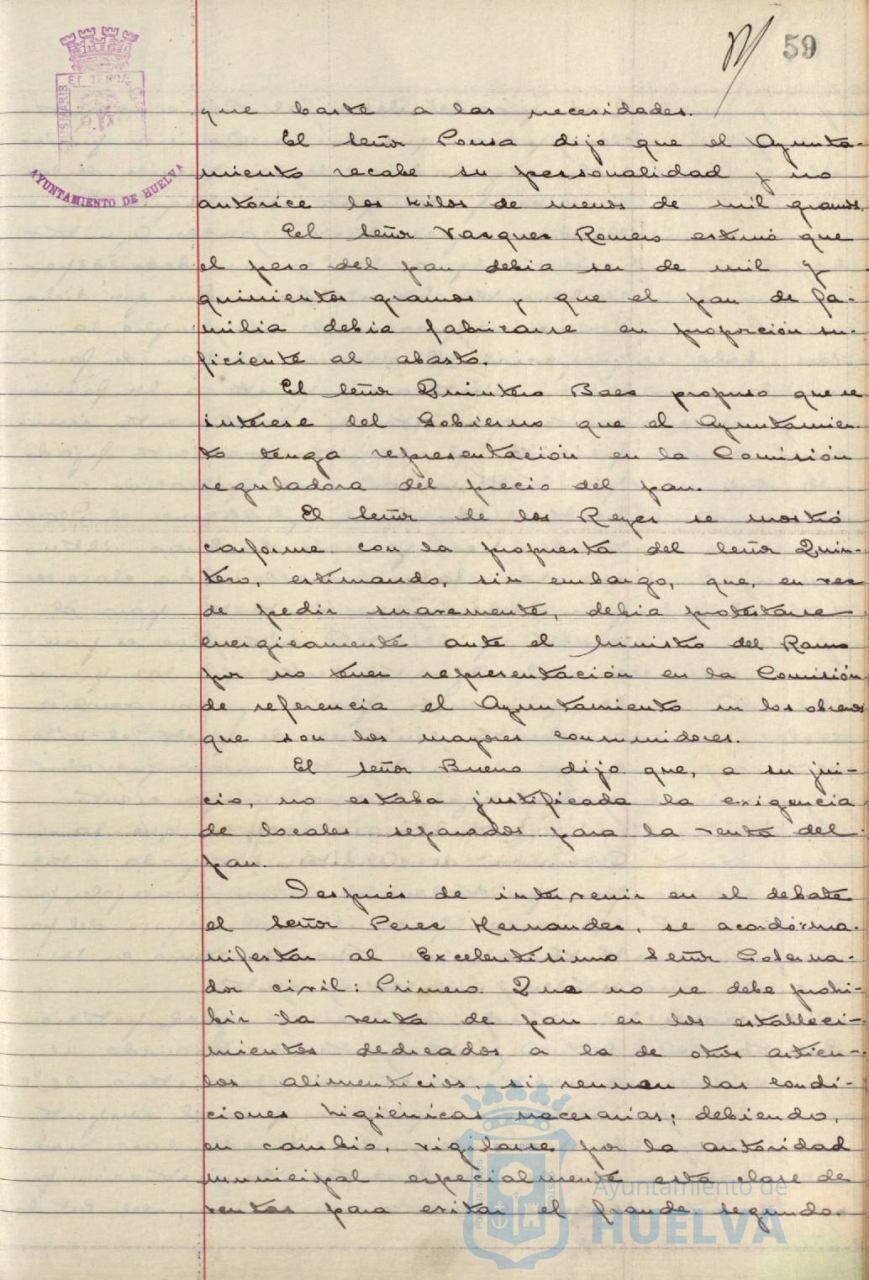 59
que baste a las necesidades.
El Señor Pousa dijo que el Ayunta-
miento recabe su personalidad y no
autorice los kilos de menos de mil gramos.
El Señor Vazquez Romero estimó que
el peso del pan debia ser de mil y
quinientos gramos y que el pan de fa-
milia debia fabricarse en proporción su-
ficiente al abasto.
El Señor Quintero Baez propuso que se
interese del Gobierno que el Ayuntamien-
to tenga representación en la Comisión
reguladora del precio del pan.
El Señor de los Reyes se mostró
conforme con la propuesta del Señor Quin-
tero, estimando, sin embargo, que, en vez
de pedir suavemente, debia protestarse
energicamente ante el Ministro del Ramo
por no tener representación en la Comisión
de referencia el Ayuntamiento ni los obreros
que son los mayores consumidores.
El Señor Bueno dijo que, a su jui-
cio, no estaba justificada la exigencia
de locales separados para la venta del
pan.
Después de intervenir en el debate
el Señor Perez Hernandez, se acordó: ma-
nifestar al Excelentisimo Señor Goberna-
dor civil: Primero. Que no se debe prohi-
bir la venta de pan en los estableci-
mientos dedicados a la de otros articu-
los alimenticios, si reunen las condi-
ciones higiénicas necesarias; debiendo,
en cambio, vigilarse por la autoridad
municipal especialmente esta clase de
ventas para evitar el fraude. Segundo.
AYUNTAMIENTO DE HUELVA
Ayuntamiento de
HUELVA